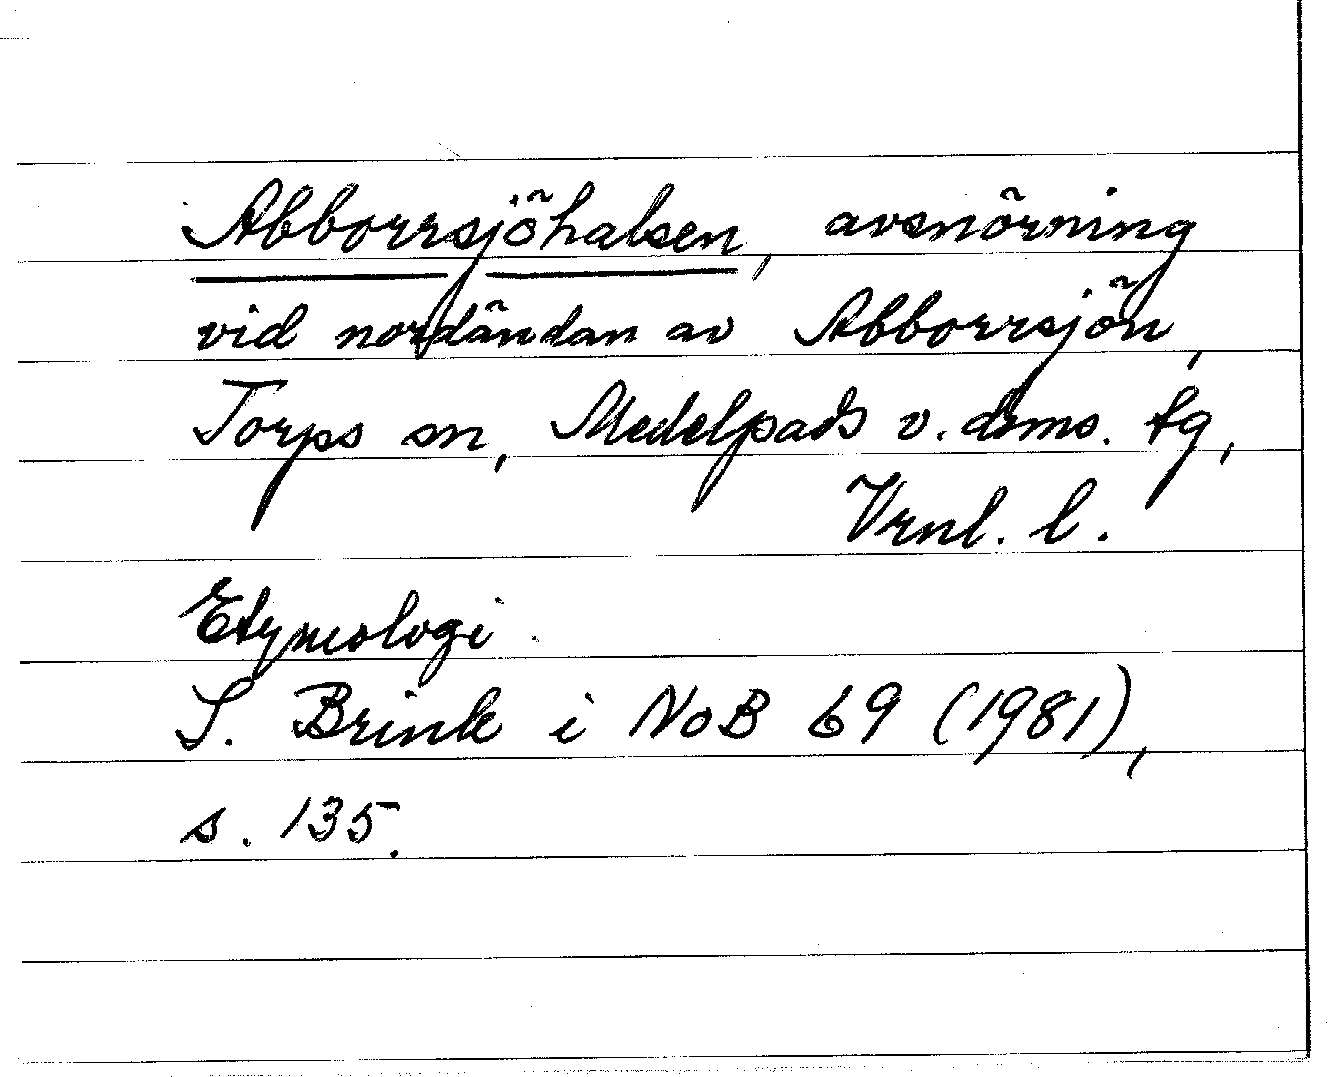 Abborrsjöhalsen, avsnörning
vid nordändan av Abborrsjön,
Torps sn, Medelpads v. doms. tg,
Vrnl. l.
Etymologi.
S. Brink i NoB 69 (1981),
s. 135.